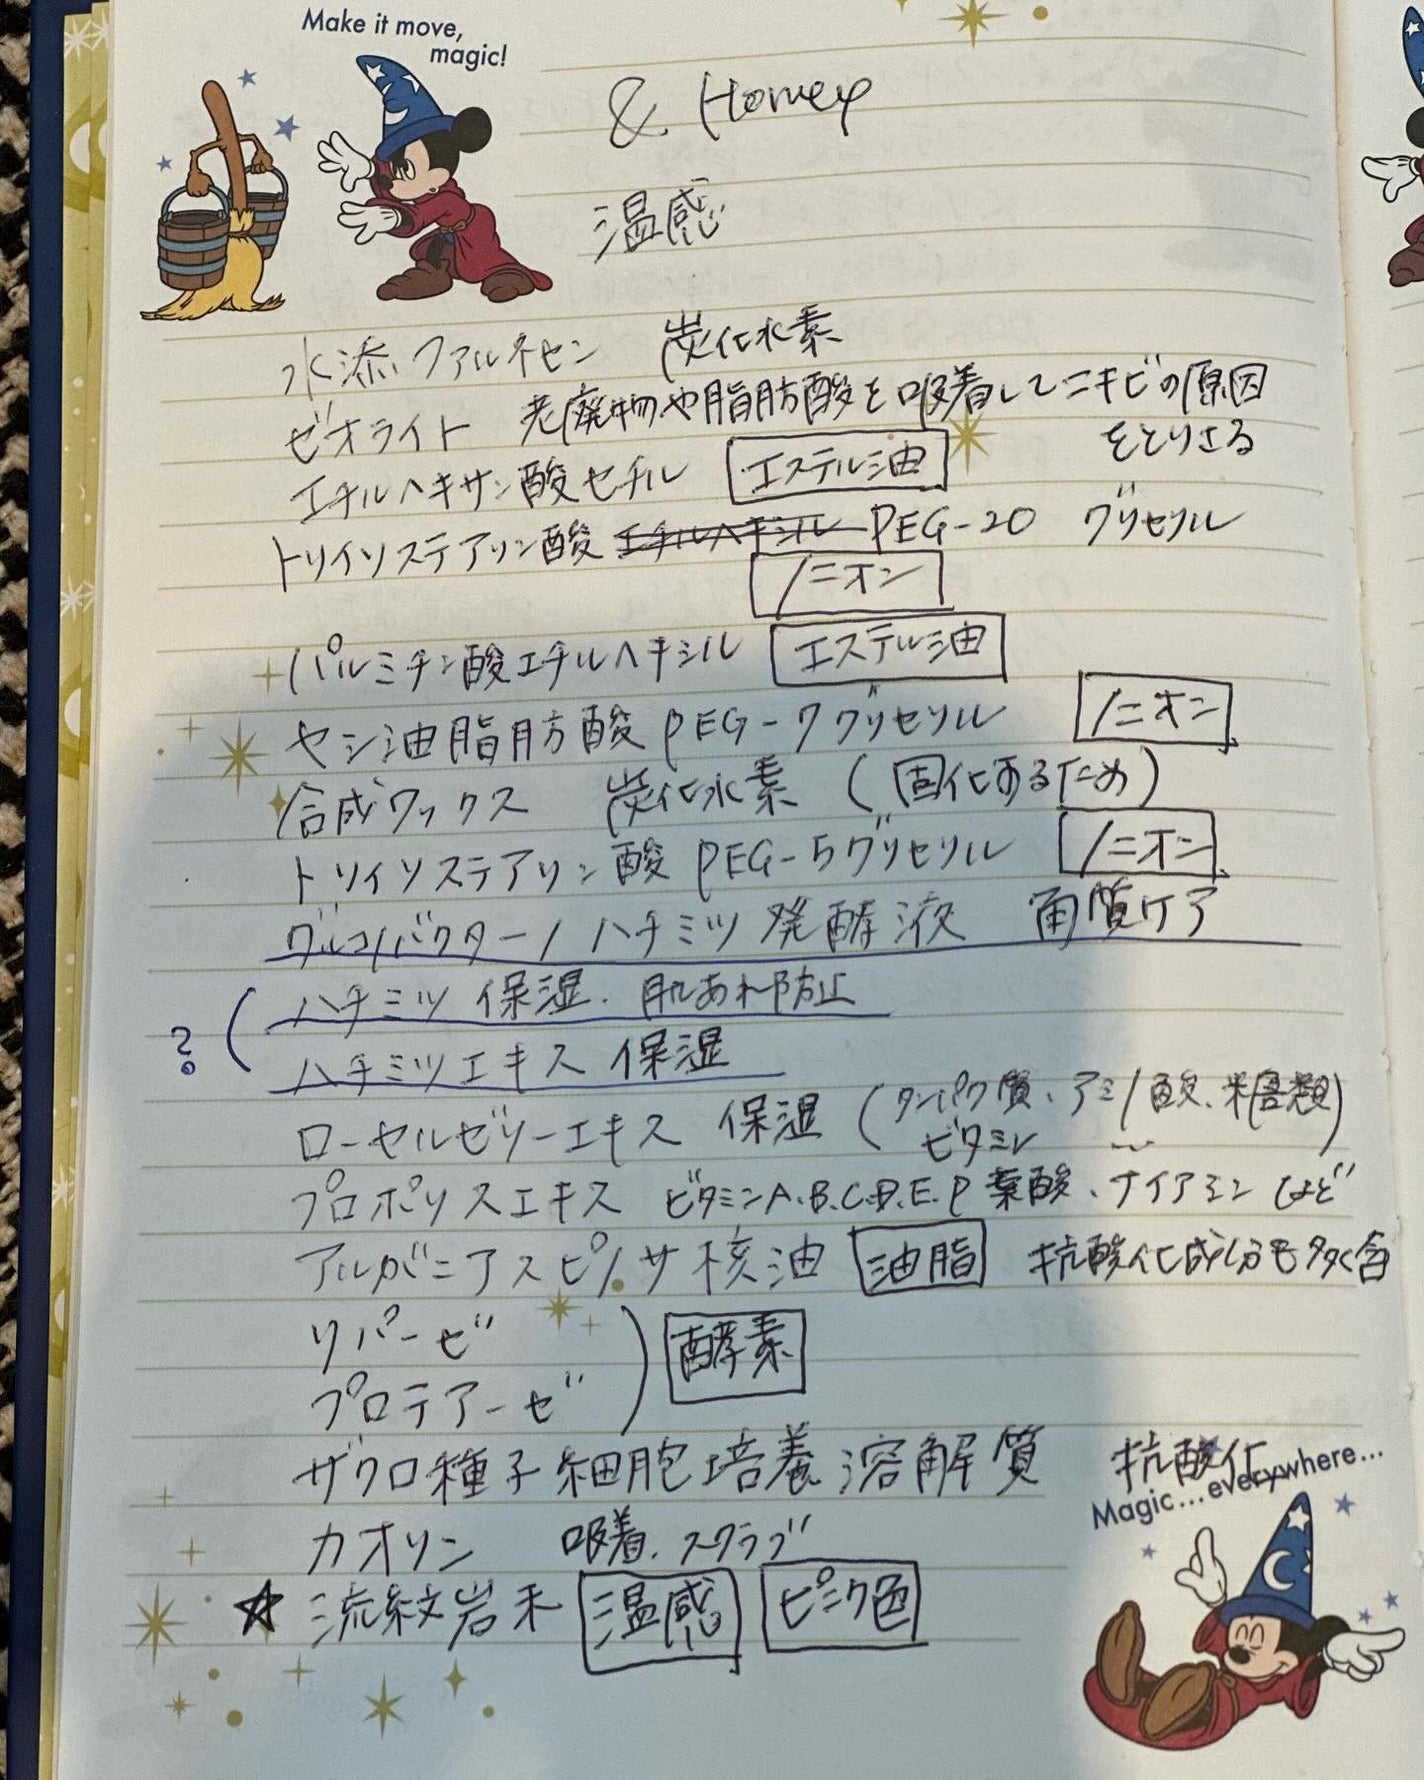 Make it move,
magic!
& Honey
温感
水添ファルネセン 炭化水素
ゼオライト 老廃物や脂肪酸を吸着してニキビの原因
をとりさる
エチルヘキサン酸セチル エステル油
トリイソステアリン酸 エチルヘキシル PEG-20 グリセリル
ノニオン
パルミチン酸エチルヘキシル エステル油
ヤシ油脂肪酸PEG-7グリセリル ノニオン
合成ワックス 炭化水素 (固化するため)
トリイソステアリン酸PEG-5グリセリル ノニオン
グルコノバクター/ハチミツ発酵液 角質ケア
? ( ハチミツ 保湿. 肌あれ防止
ハチミツエキス 保湿
ローヤルゼリーエキス 保湿 (タンパク質、アミノ酸、糖類)
ビタミン
プロポリスエキス ビタミンA.B.C.D.E.P 葉酸、ナイアミン など
アルガニアスピノサ核油 油脂 抗酸化成分も多く含
リパーゼ
) 酵素
プロテアーゼ
ザクロ種子細胞培養溶解質 抗酸化
Magic...everywhere...
カオリン 吸着.スクラブ
☆ 流紋岩末 温感 ピンク色